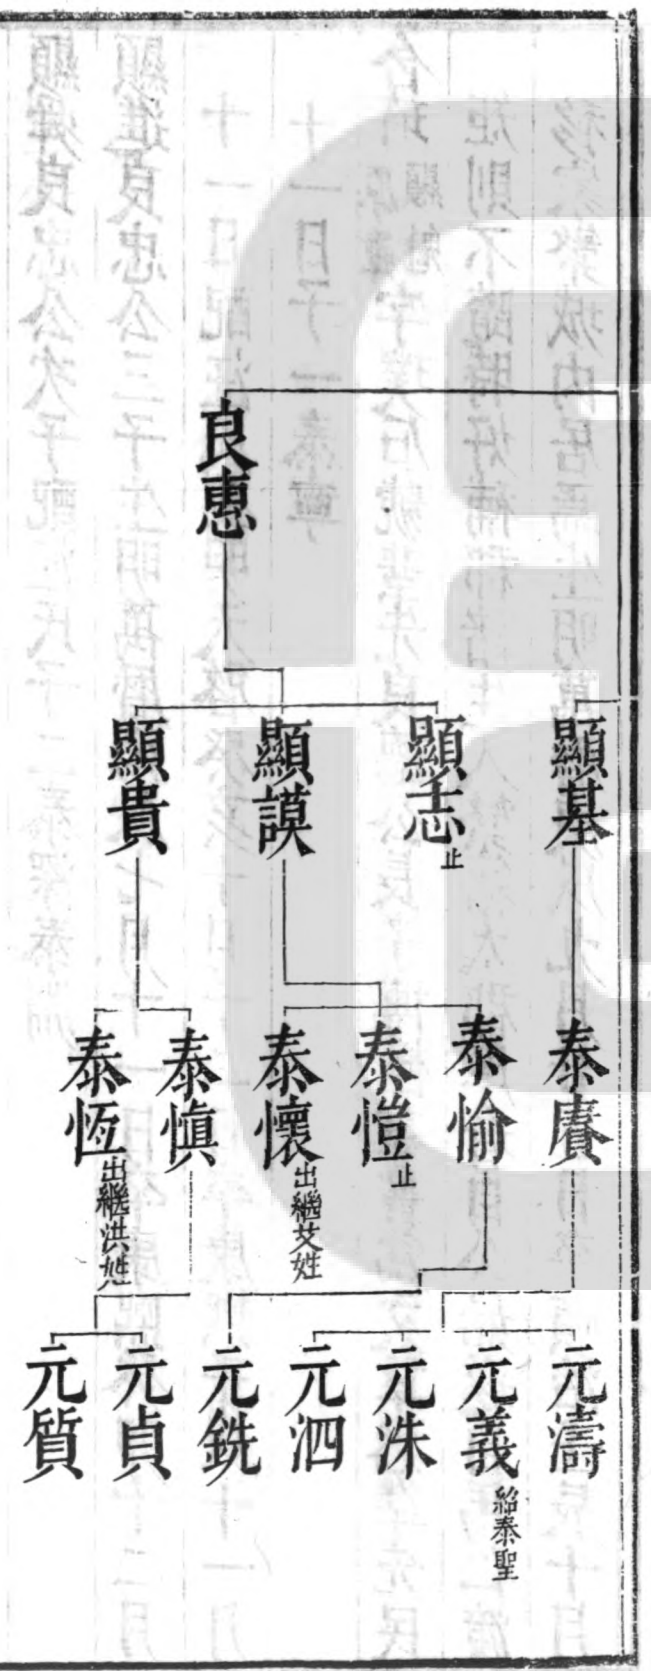 良惠
顯基
顯志止
顯謨
顯貴
泰賡
泰愉
泰愷止
泰懷出繼艾姓
泰慎
泰恆出繼洪姓
元濤
元義紹泰聖
元洙
元泗
元銑
元貞
元質